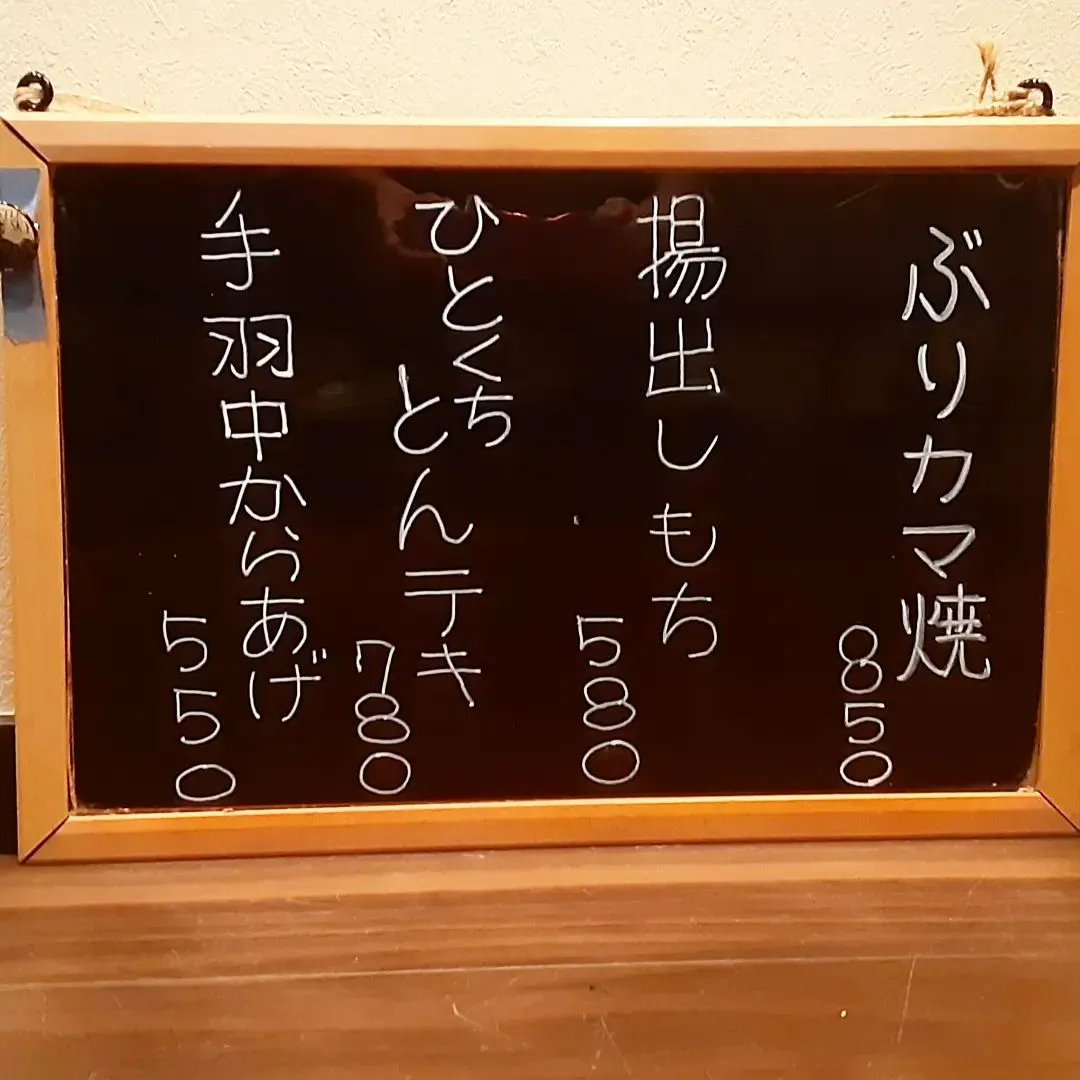 ぶりカマ焼
850
揚出しもち
580
ひとくち
とんテキ
780
手羽中からあげ
550